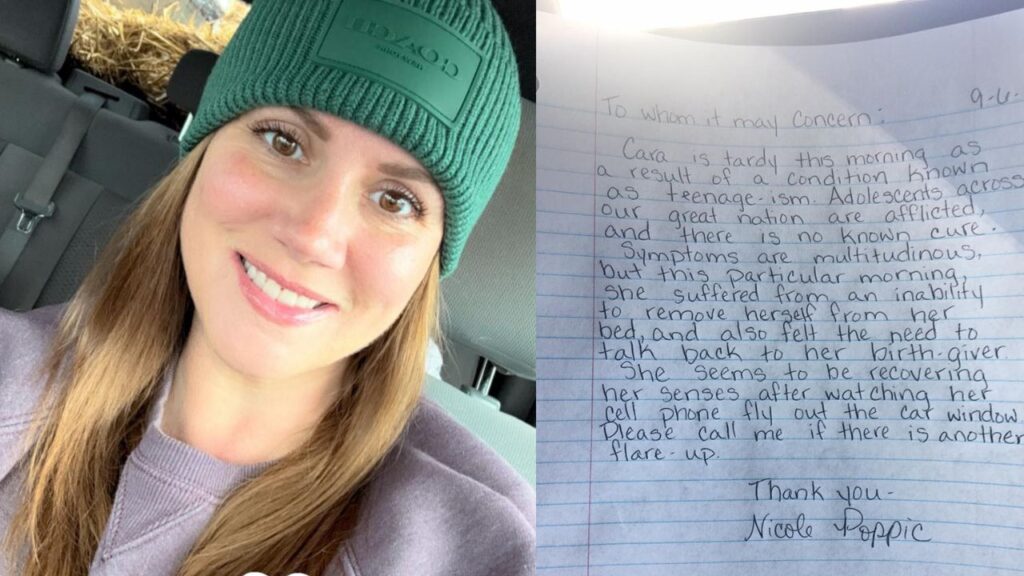 9-6-
To whom it may concern:
Cara is tardy this morning as
a result of a condition known
as teenage-ism. Adolescents across
our great nation are afflicted
and there is no known cure.
Symptoms are multitudinous,
but this particular morning,
she suffered from an inability
to remove herself from her
bed, and also felt the need to
talk back to her birth-giver.
She seems to be recovering
her senses after watching her
cell phone fly out the car window.
Please call me if there is another
flare-up.
Thank you-
Nicole Poppic